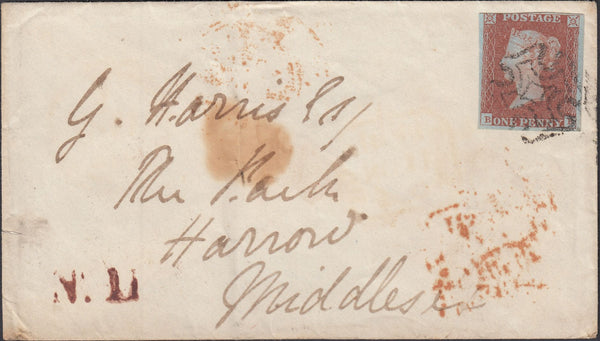 POSTAGE
ONE PENNY
G. Harris Esq
The Park
Harrow
Middlesex
N. D